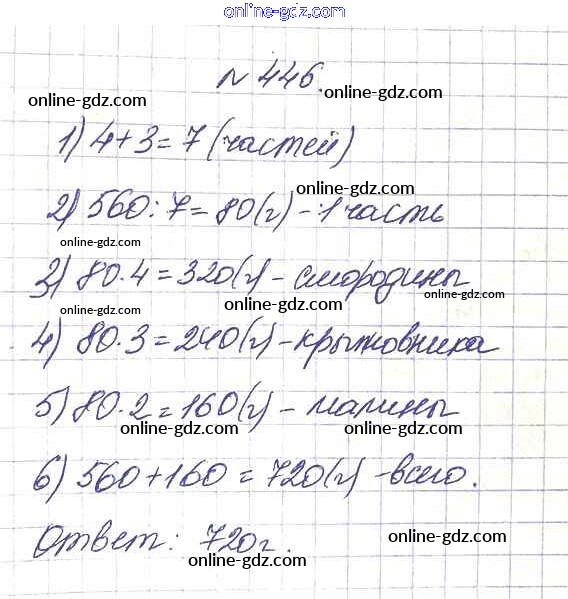 online-gdz.com
online-gdz.com
№ 446.
online-gdz.com
online-gdz.com
1) 4+3=7 (частей)
online-gdz.com
2) 560:7=80(г) - 1 часть
online-gdz.com
3) 80·4=320(г) - смородины
online-gdz.com
online-gdz.com
online-gdz.com
4) 80·3=240(г) - крыжовника
5) 80·2=160(г) - малины
online-gdz.com
online-gdz.com
6) 560+160=720(г) - всего.
Ответ: 720г.
online-gdz.com
online-gdz.com